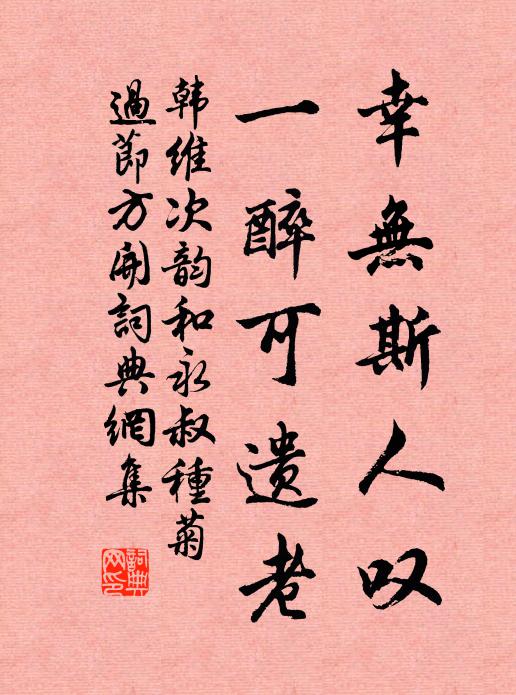 幸無斯人叹
一醉可遗老
韩维次韵和永叔種菊
過節方開詞典網集
詞典網印